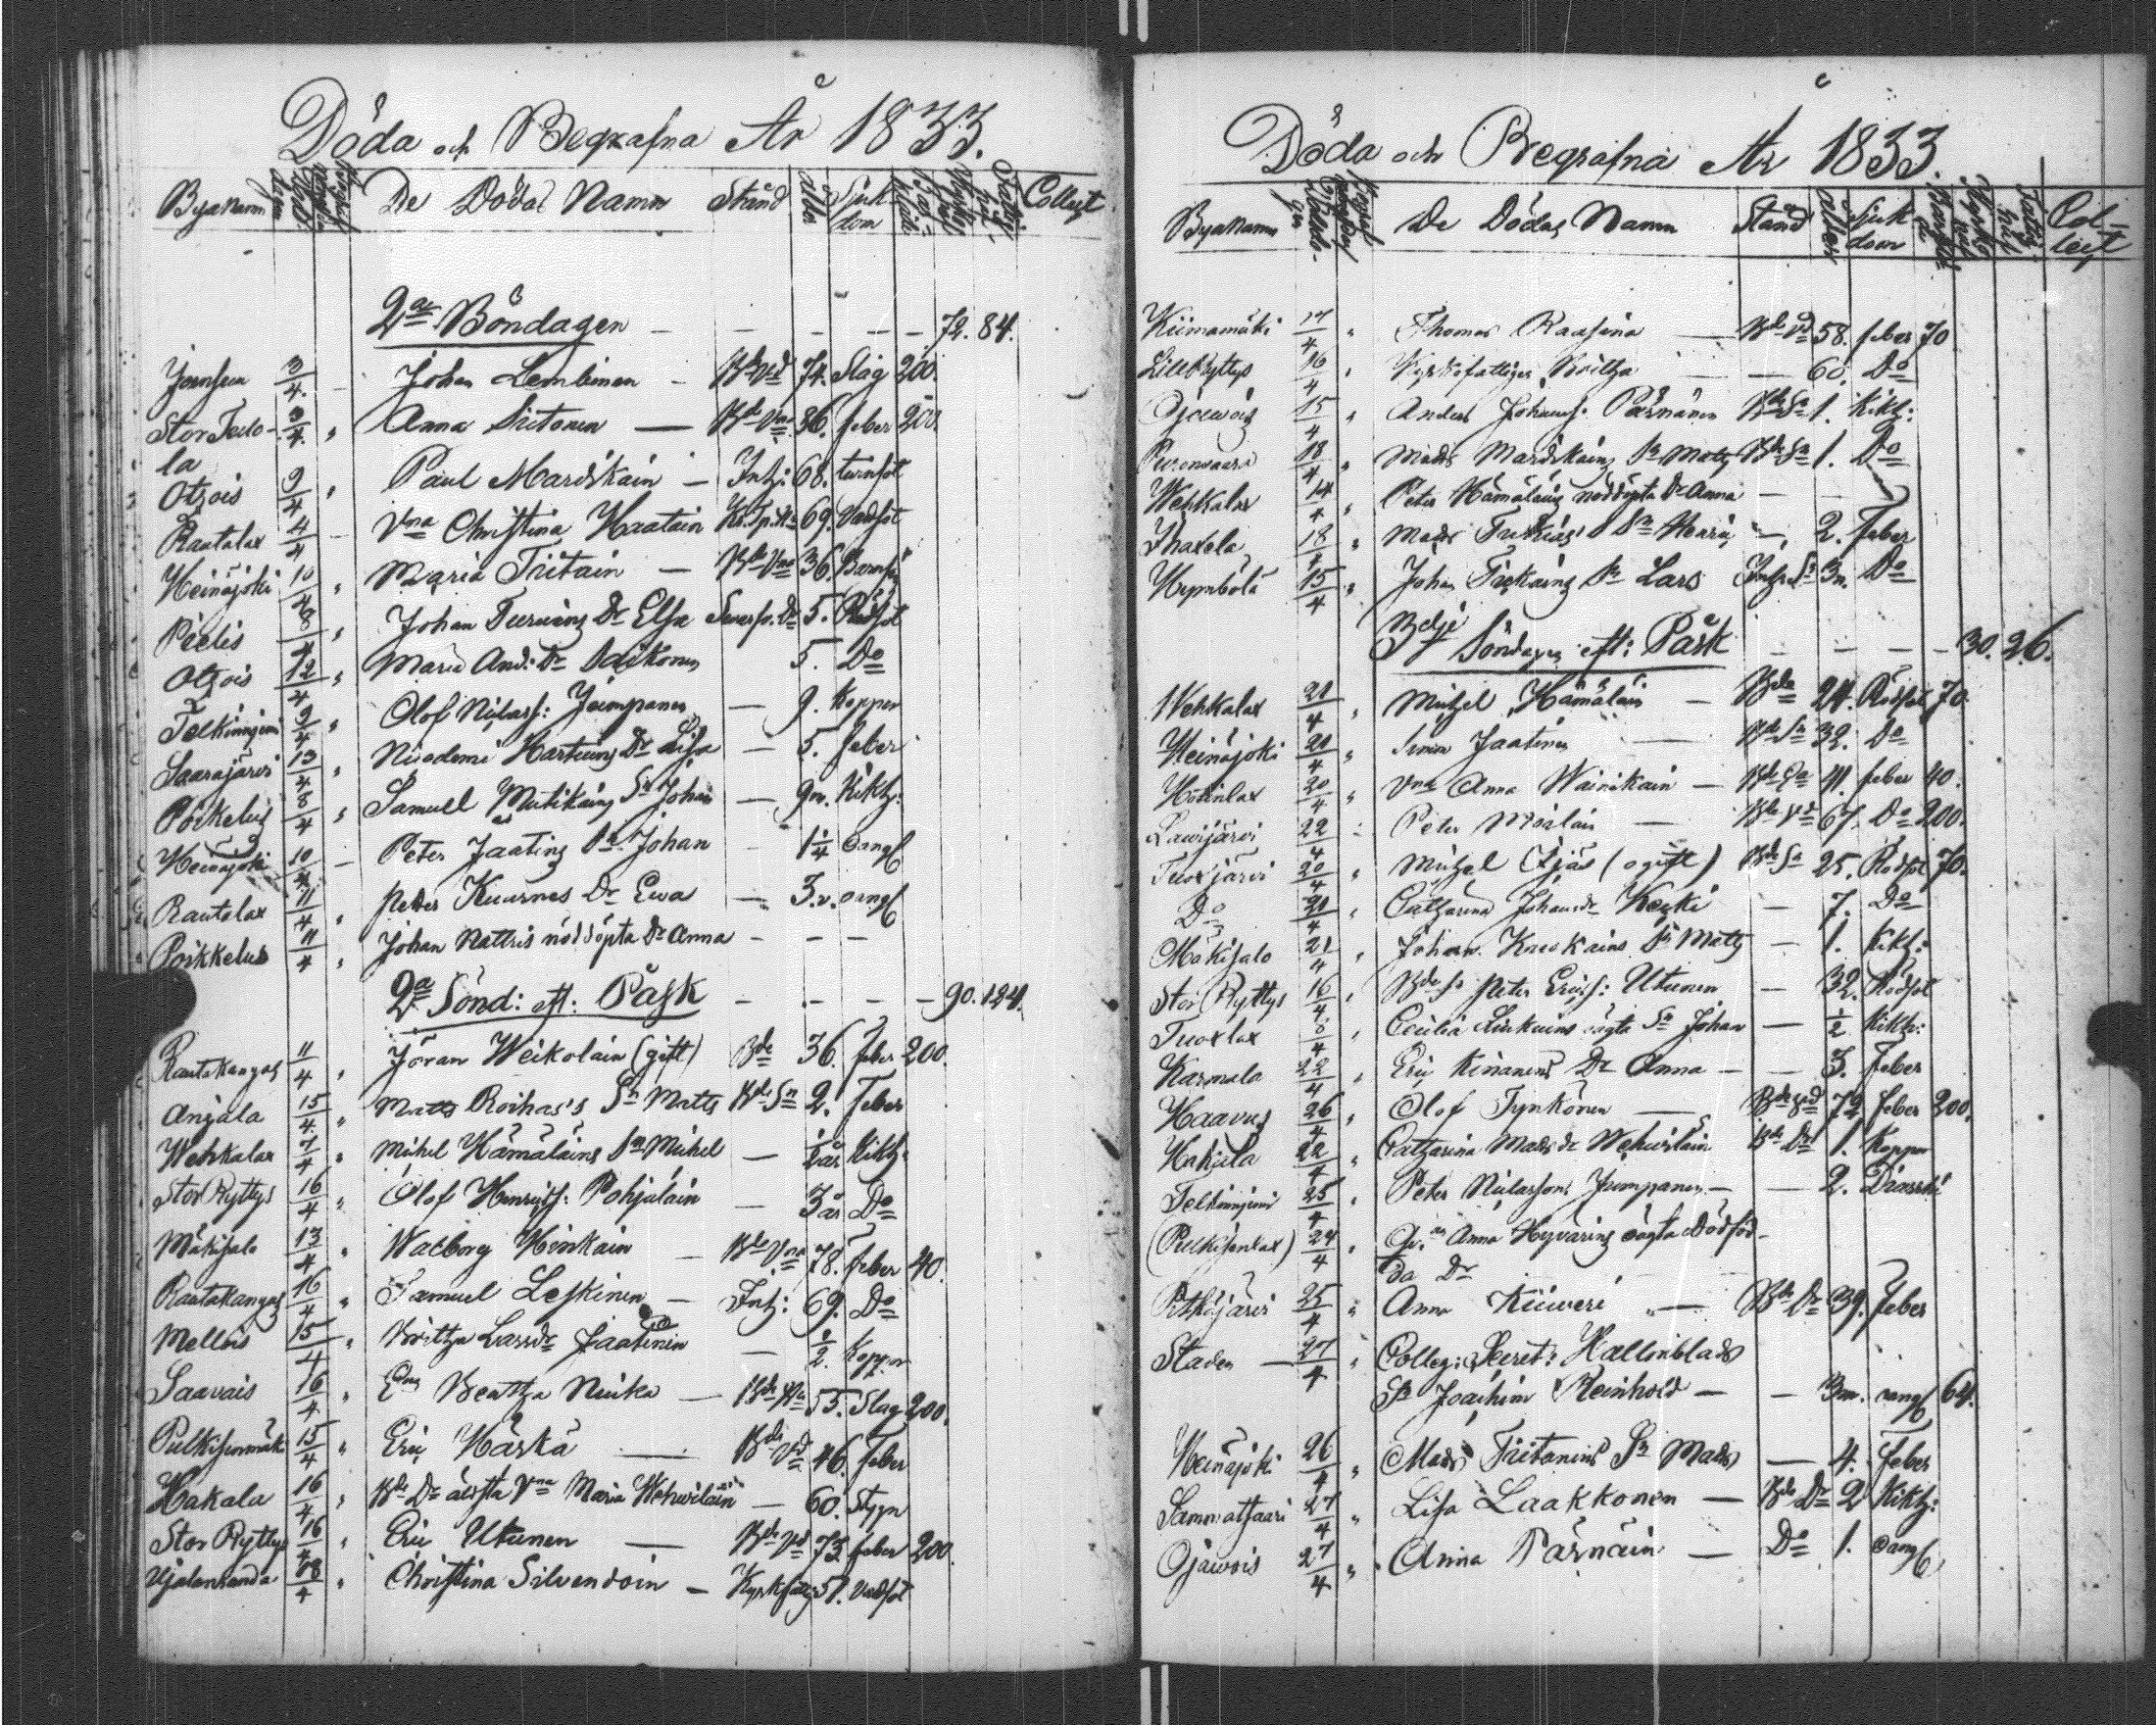 Döda och Begrafna År 1833.
Byanamn De Dödas Namn Stånd ålder Sjukdom Collect
2a Böndagen - - - - - 72. 84.
Joensuu 3/4. - Johan Lembinen - Bde Vd 74. Slag 200.
Stor Teelo- 3/4. " Anna Siitonen - Bde Vna 86. feber 200.
la
Otrois 9/4 " Paul Mardikain - Inh: 68. tvinsot
Rautalax 4/4 - Vna Christina Haatain 69. Vadsot
Heinäjoki 10/4 " Maria Tiitain - Bde Vna 36. Barns
Peelis 8/4 " Johan Dr Elsa 5. Rödsot
Otrois 12/4 " Maria And: Dr Saikonen 5. Do
Telkinnjemi 9/4 " Olof Nilass: Jumpanen - 9. Koppor
Saarajärvi 13/4 " Nicodemi Dr Lisa - 5. feber
Poikelus 8/4 " Samuel Mutikains Sn Johan - 9m. Kikh:
Heinäjoki 10/4 - Peter Jaatins Sn Johan - 1 1/4 oangf
Rautalax 11/4 " Peter Kuurnes Dr Ewa - 3.v. oangf
Poikkelus 11/4 " Johan Nattris nöddöpta Dr Anna - - -
2a Sönd: eft: Påsk - - - - 90. 124.
Rautakangas 11/4 " Jöran Weikolain (gift) Bde 36. feber 200.
Anjala 15/4. " Matts Roihas's Sn Matts Bde Sn 2. feber
Wehkalax 7/4 " Michel Hämäläins Sn Michel - 1/2 år Kikh:
Stor Ryttys 16/4 " Olof Henricss: Pohjalain - 3 år Do
Mäkisalo 13/4 " Walborg Hinkain - Bde Vna 78. feber 40.
Rautakangas 16/4 " Samuel Leskinen - Inh: 69. Do
Mellois 15/4 " Britha Larsdr Jaatinen - 1/2. Koppor
Saavais 16/4 " Beatha Nuika - 55. Slag 200.
Pulkisenmäki 15/4 " Eric Härkä - Bde Vd 46. feber
Hakala 16/4 " Bde Dr Vna Maria Wehvilain - 60. Styn
Stor Ryttys 16/4 " Eric Utunen - Bde Vd 73. feber 200.
Ujalanranda 18/4 " Christina Silvendoin - Kyrkfatt: 51. Vadsot
Döda och Begrafna År 1833.
Byanamn De Dödas Namn Stånd ålder Sjukdom Collect
Kiimamäki 17/4 " Thomas Raasina - Bde Vd 58. feber 70
Lill Ryttys 16/4 " Kyrkofattiges Britha - 60. Do
Ojawois 15/4 " Anders Johanss: Pärnänen Bde Sn 1. Kikh:
Puronvaara 18/4 " Mads Mardikains Sn Matts Bde Sn 1. Do
Wehkalax 14/4 " Peter Hämäläins nöddöpta Dr Anna -
Ihaxela 18/4 " Mads Sn Henric - 2. feber
Hymbölä 15/4 " Johan Sn Lars 3m. Do
3dje Söndagen eft: Påsk - - - - 30. 26.
Wehkalax 21/4 " Michel Hämäläin - Bde 24. Rödsot 70.
Heinäjoki 21/4 " Simon Jaatinen - Bde Sn 32. Do
Hötinlax 20/4 " Vna Anna Wainikain - 41. feber 40.
Lauvijärvi 22/4 " Peter Moilain - Bde Vd 67. Do 200.
Tuoxjärvi 20/4 " Michel Ejäs (ogift) Bde Sn 25. Rödsot 70.
Do 21/4 " Catharina Johansdr Keski - 7. Do
Mäkisalo 21/4 " Johan Sn Matts - 1. Kikh:
Stor Ryttys 16/4 " Bde Sn Peter Ericss: Utunen - 32. Rödsot
Tuoxlax 8/4 " Cecilia oägta Sn Johan - 1/2 Kikh:
Karmala 22/4 " Eric Kinanens Dr Anna - 3. feber
Haavus 26/4 " Olof Tynkönen - 72 feber 200.
Hakjala 22/4 " Catharina Mads dr Wehwiläin Bde Dr 1. Koppor
Telkinnjemi 25/4 " Peter Nilassons Jumpanen - - 2. Diarrhé
(Pulkisenlax) 24/4 " Anna Hyvärins oägta Dödföd-
da Dr
Pitkäjärvi 25/4 " Anna Kiiweri - Bde Dr 39. feber
Staden - 27/4 " Colleg: Secret: Hallinblads
Sn Joachim Reinhold - - 3m. oangf 64.
Heinäjoki 26/4 " Mads Tiitanens Sn Mads - 4. feber
Sammatsaari 27/4 " Lisa Laakkonen - Bde Dr 2 Kikh:
Ojawois 27/4 " Anna Pärnäin - Do 1. oangf